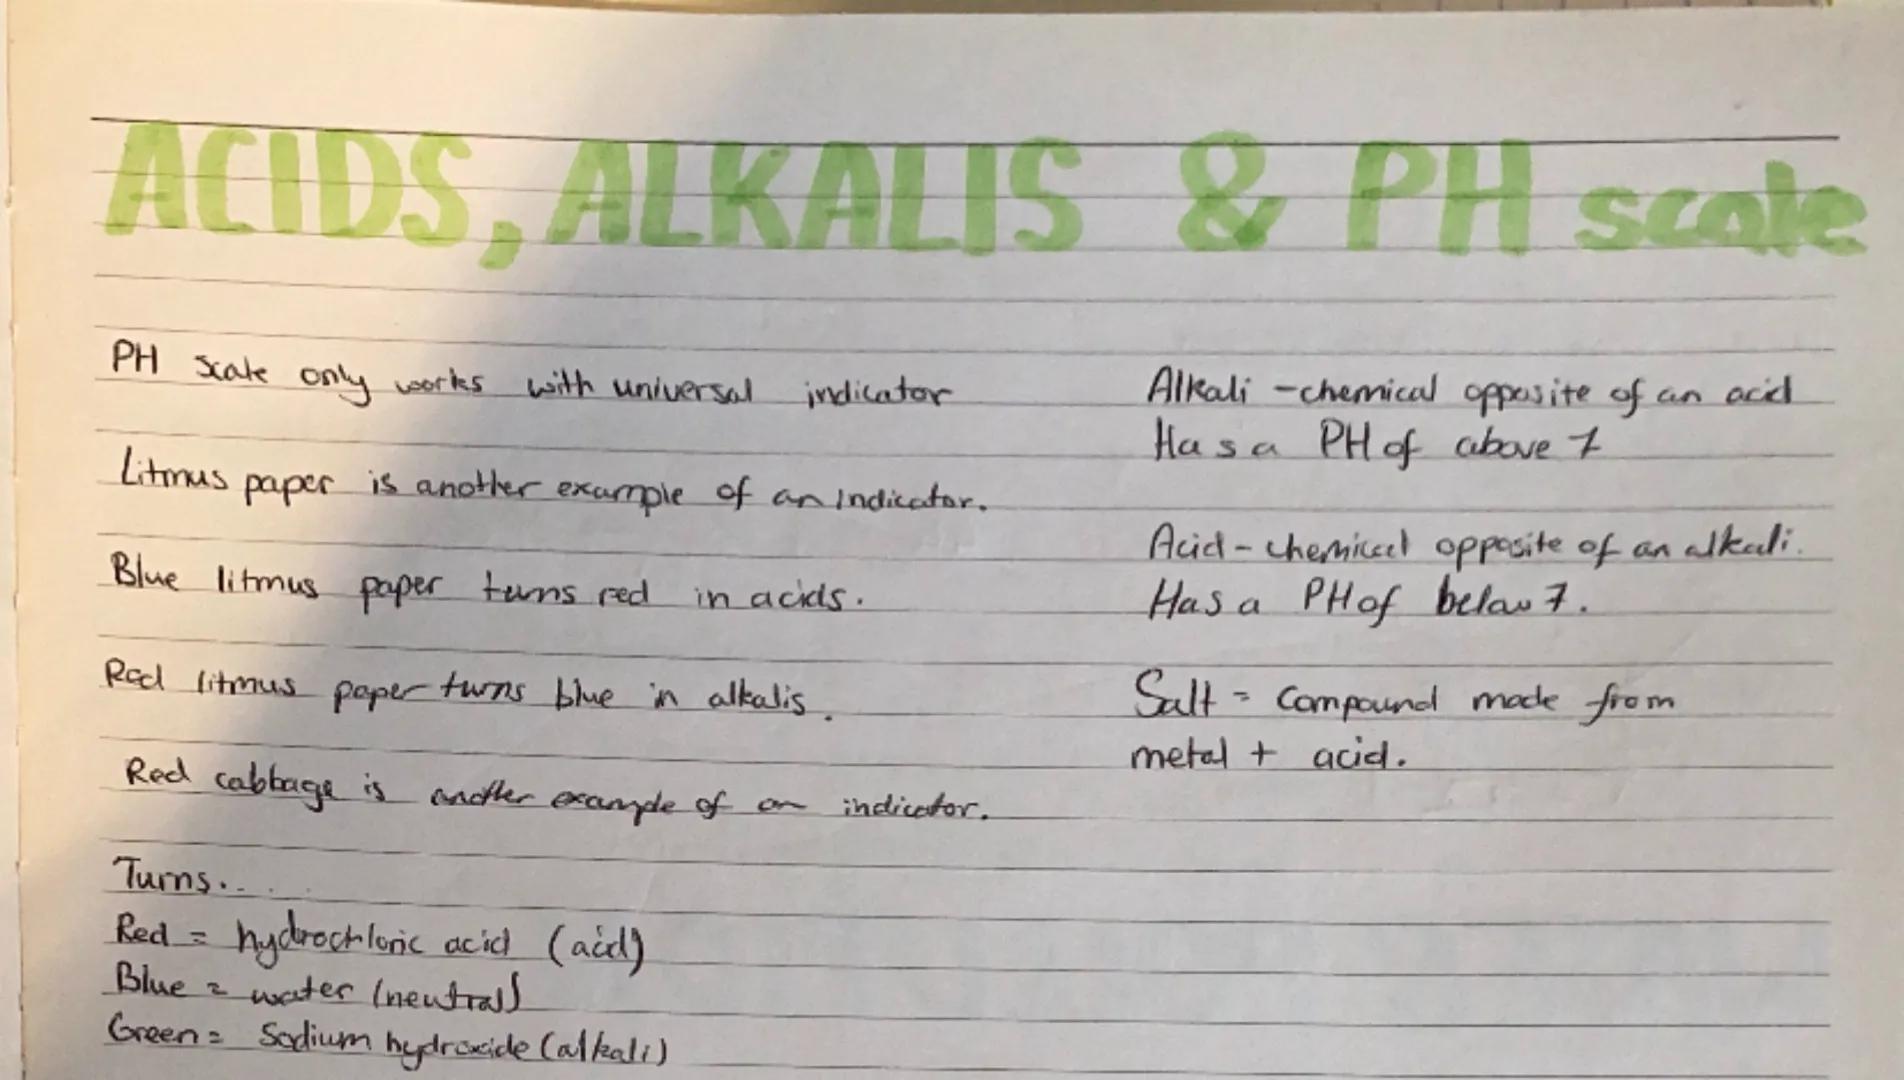 ACIDS, ALKALIS & PH scale
PH scale only works with universal indicator
Litmus paper is another example of an indicator.
Blue litmus paper turns red in acids.
Red litmus paper turns blue in alkalis.
Red cabbage is another example of an indicator.
Turns....
Red = hydrochloric acid (acid)
Blue = water (neutral)
Green = Sodium hydroxide (alkali)
Alkali - chemical opposite of an acid
Has a PH of above 7
Acid - chemical opposite of an alkali.
Has a PH of below 7.
Salt = Compound made from
metal + acid.